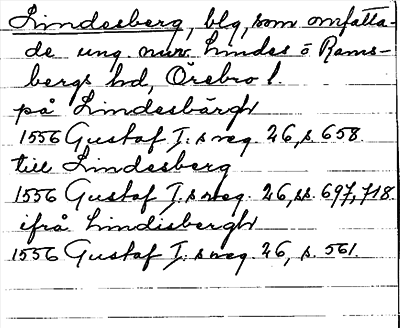 Lindesberg, blg, som omfatta-
de ung. nuv. Lindes o Rams-
bergs hd, Örebro l.
på Lindesbärgh
1556 Gustaf I:s reg. 26, s. 658.
till Lindesberg
1556 Gustaf I:s reg. 26, ss. 697, 718.
ifrå Lindisbergh
1556 Gustaf I:s reg. 26, s. 561.